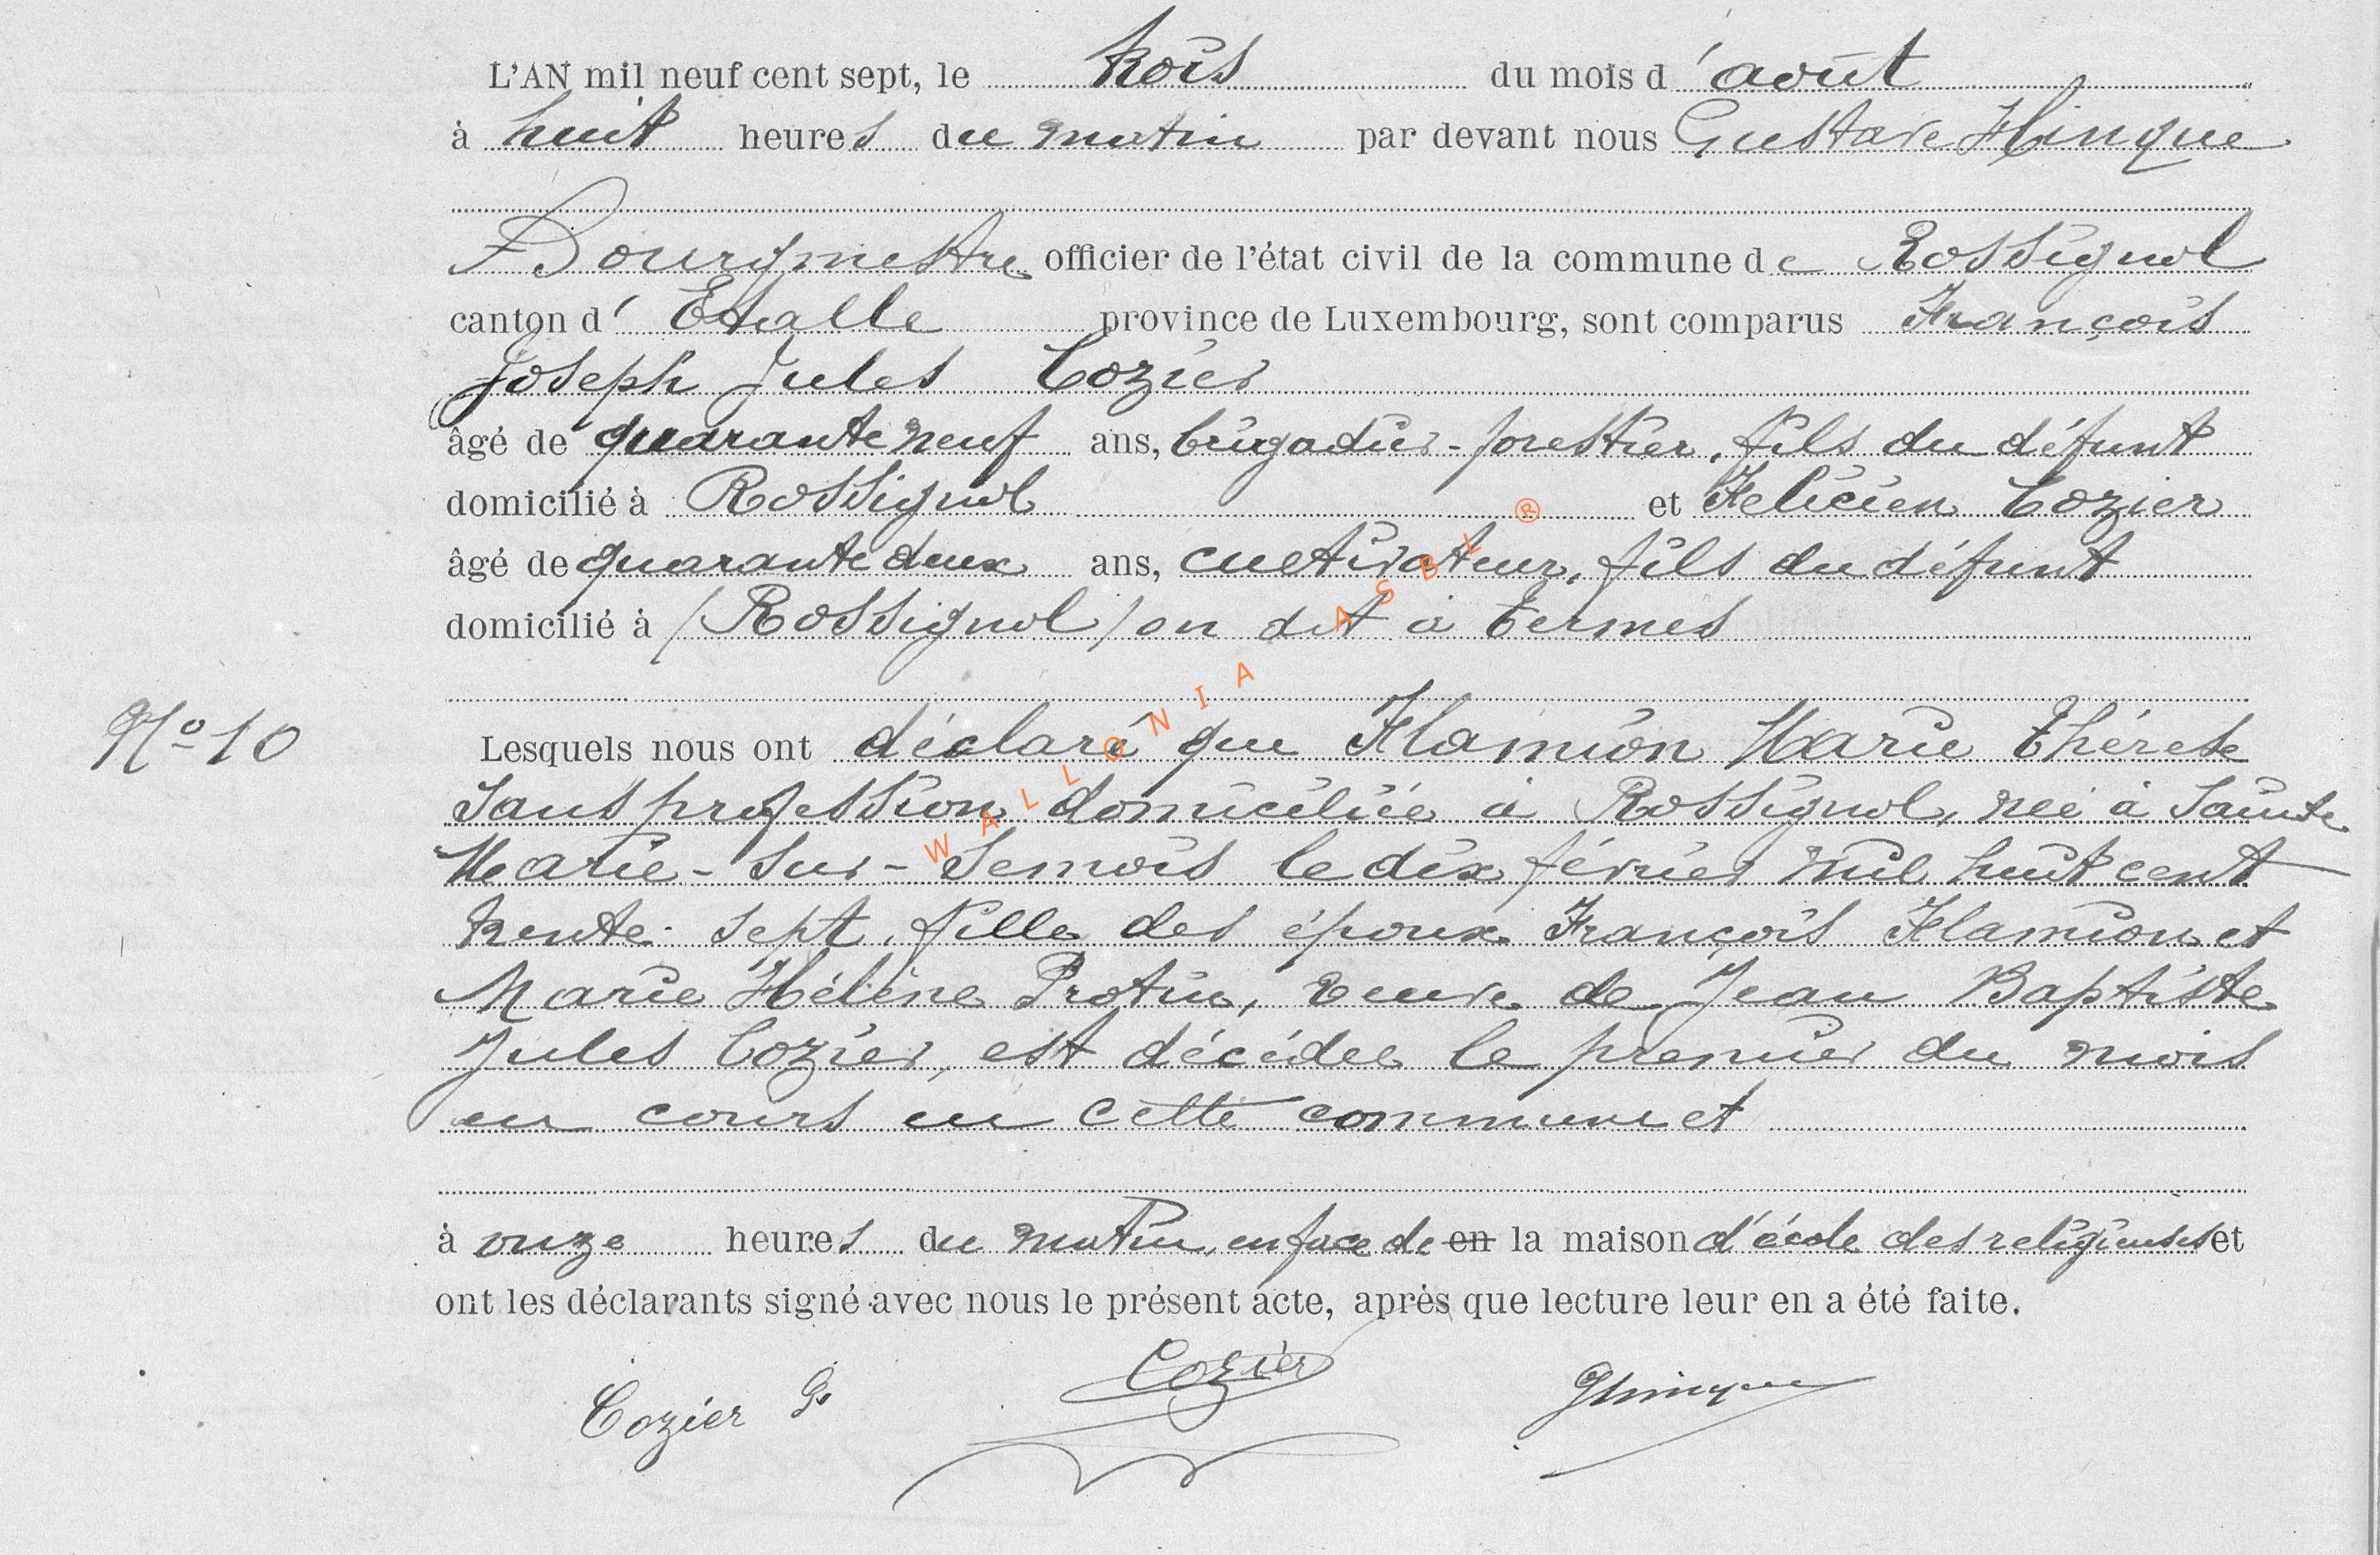 L'AN mil neuf cent sept, le trois du mois d'août
à huit heures du matin par devant nous Gustave Hinque
Bourgmestre officier de l'état civil de la commune de Rossignol
canton d'Etalle province de Luxembourg, sont comparus François
Joseph Jules Cozier
âgé de quarante neuf ans, brigadier-forestier, fils du défunt
domicilié à Rossignol et Félicien Cozier
âgé de quarante deux ans, cultivateur, fils du défunt
domicilié à (Rossignol) on dit à Termes
N° 10
Lesquels nous ont déclaré que Flamion Marie Thérèse
sans profession domiciliée à Rossignol, née à Sainte
Marie-sur-Semois le dix février mil huit cent
trente-sept, fille des époux François Flamion et
Marie Hélène Protin, veuve de Jean Baptiste
Jules Cozier, est décédée le premier du mois
en cours en cette commune et
à onze heures du matin, en face de en la maison d'école des religieuses et
ont les déclarants signé avec nous le présent acte, après que lecture leur en a été faite.
Cozier Cozier GHinque
WALLONIA ASBL ®